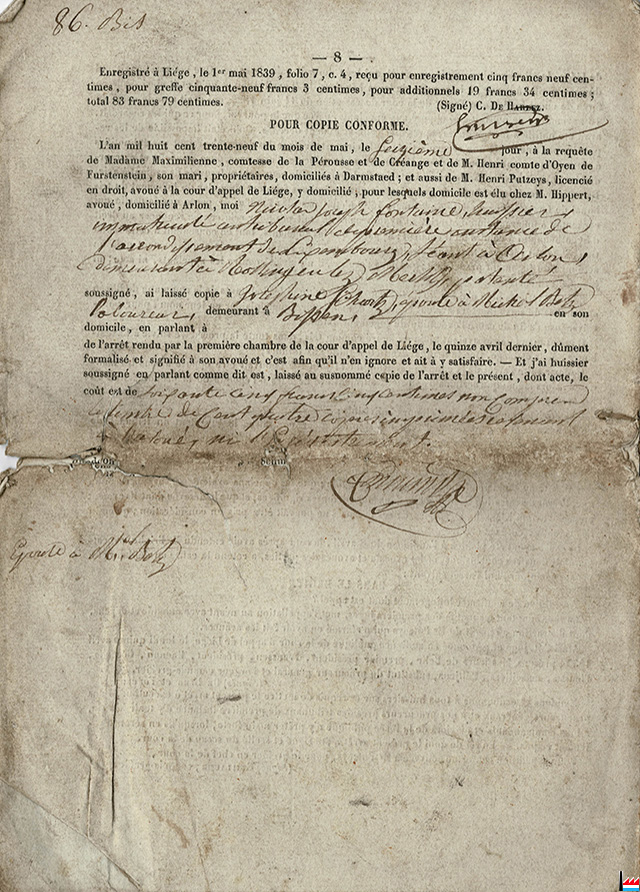 86. Bis
— 8 —
Enregistré à Liége, le 1er mai 1839, folio 7, c. 4, reçu pour enregistrement cinq francs neuf cen-
times, pour greffe cinquante-neuf francs 3 centimes, pour additionnels 19 francs 34 centimes;
total 83 francs 79 centimes. (Signé) C. De
POUR COPIE CONFORME.
L'an mil huit cent trente-neuf du mois de mai, le seizième jour, à la requête
de Madame Maximilienne, comtesse de la Pérousse et de Créange et de M. Henri comte d'Oyen de
Furstenstein, son mari, propriétaires, domiciliés à Darmstaed; et aussi de M. Henri Putzeys, licencié
en droit, avoué à la cour d'appel de Liége, y domicilié; pour lesquels domicile est élu chez M. Hippert,
avoué, domicilié à Arlon, moi Nicolas Joseph fontaine, huissier
immatriculé au tribunal de première instance de
l'arrondissement de Luxembourg, séant à Arlon,
demeurant à patenté
soussigné, ai laissé copie à épouse à Michel
demeurant à Bissen en son
domicile, en parlant à
de l'arrêt rendu par la première chambre de la cour d'appel de Liége, le quinze avril dernier, dûment
formalisé et signifié à son avoué et c'est afin qu'il n'en ignore et ait à y satisfaire. — Et j'ai huissier
soussigné en parlant comme dit est, laissé au susnommé copie de l'arrêt et le présent, dont acte, le
coût est de soixante cinq francs cinq centimes non compris
le timbre de Cent quatre copies imprimées
à l'avoué, ni
Epouse à M.